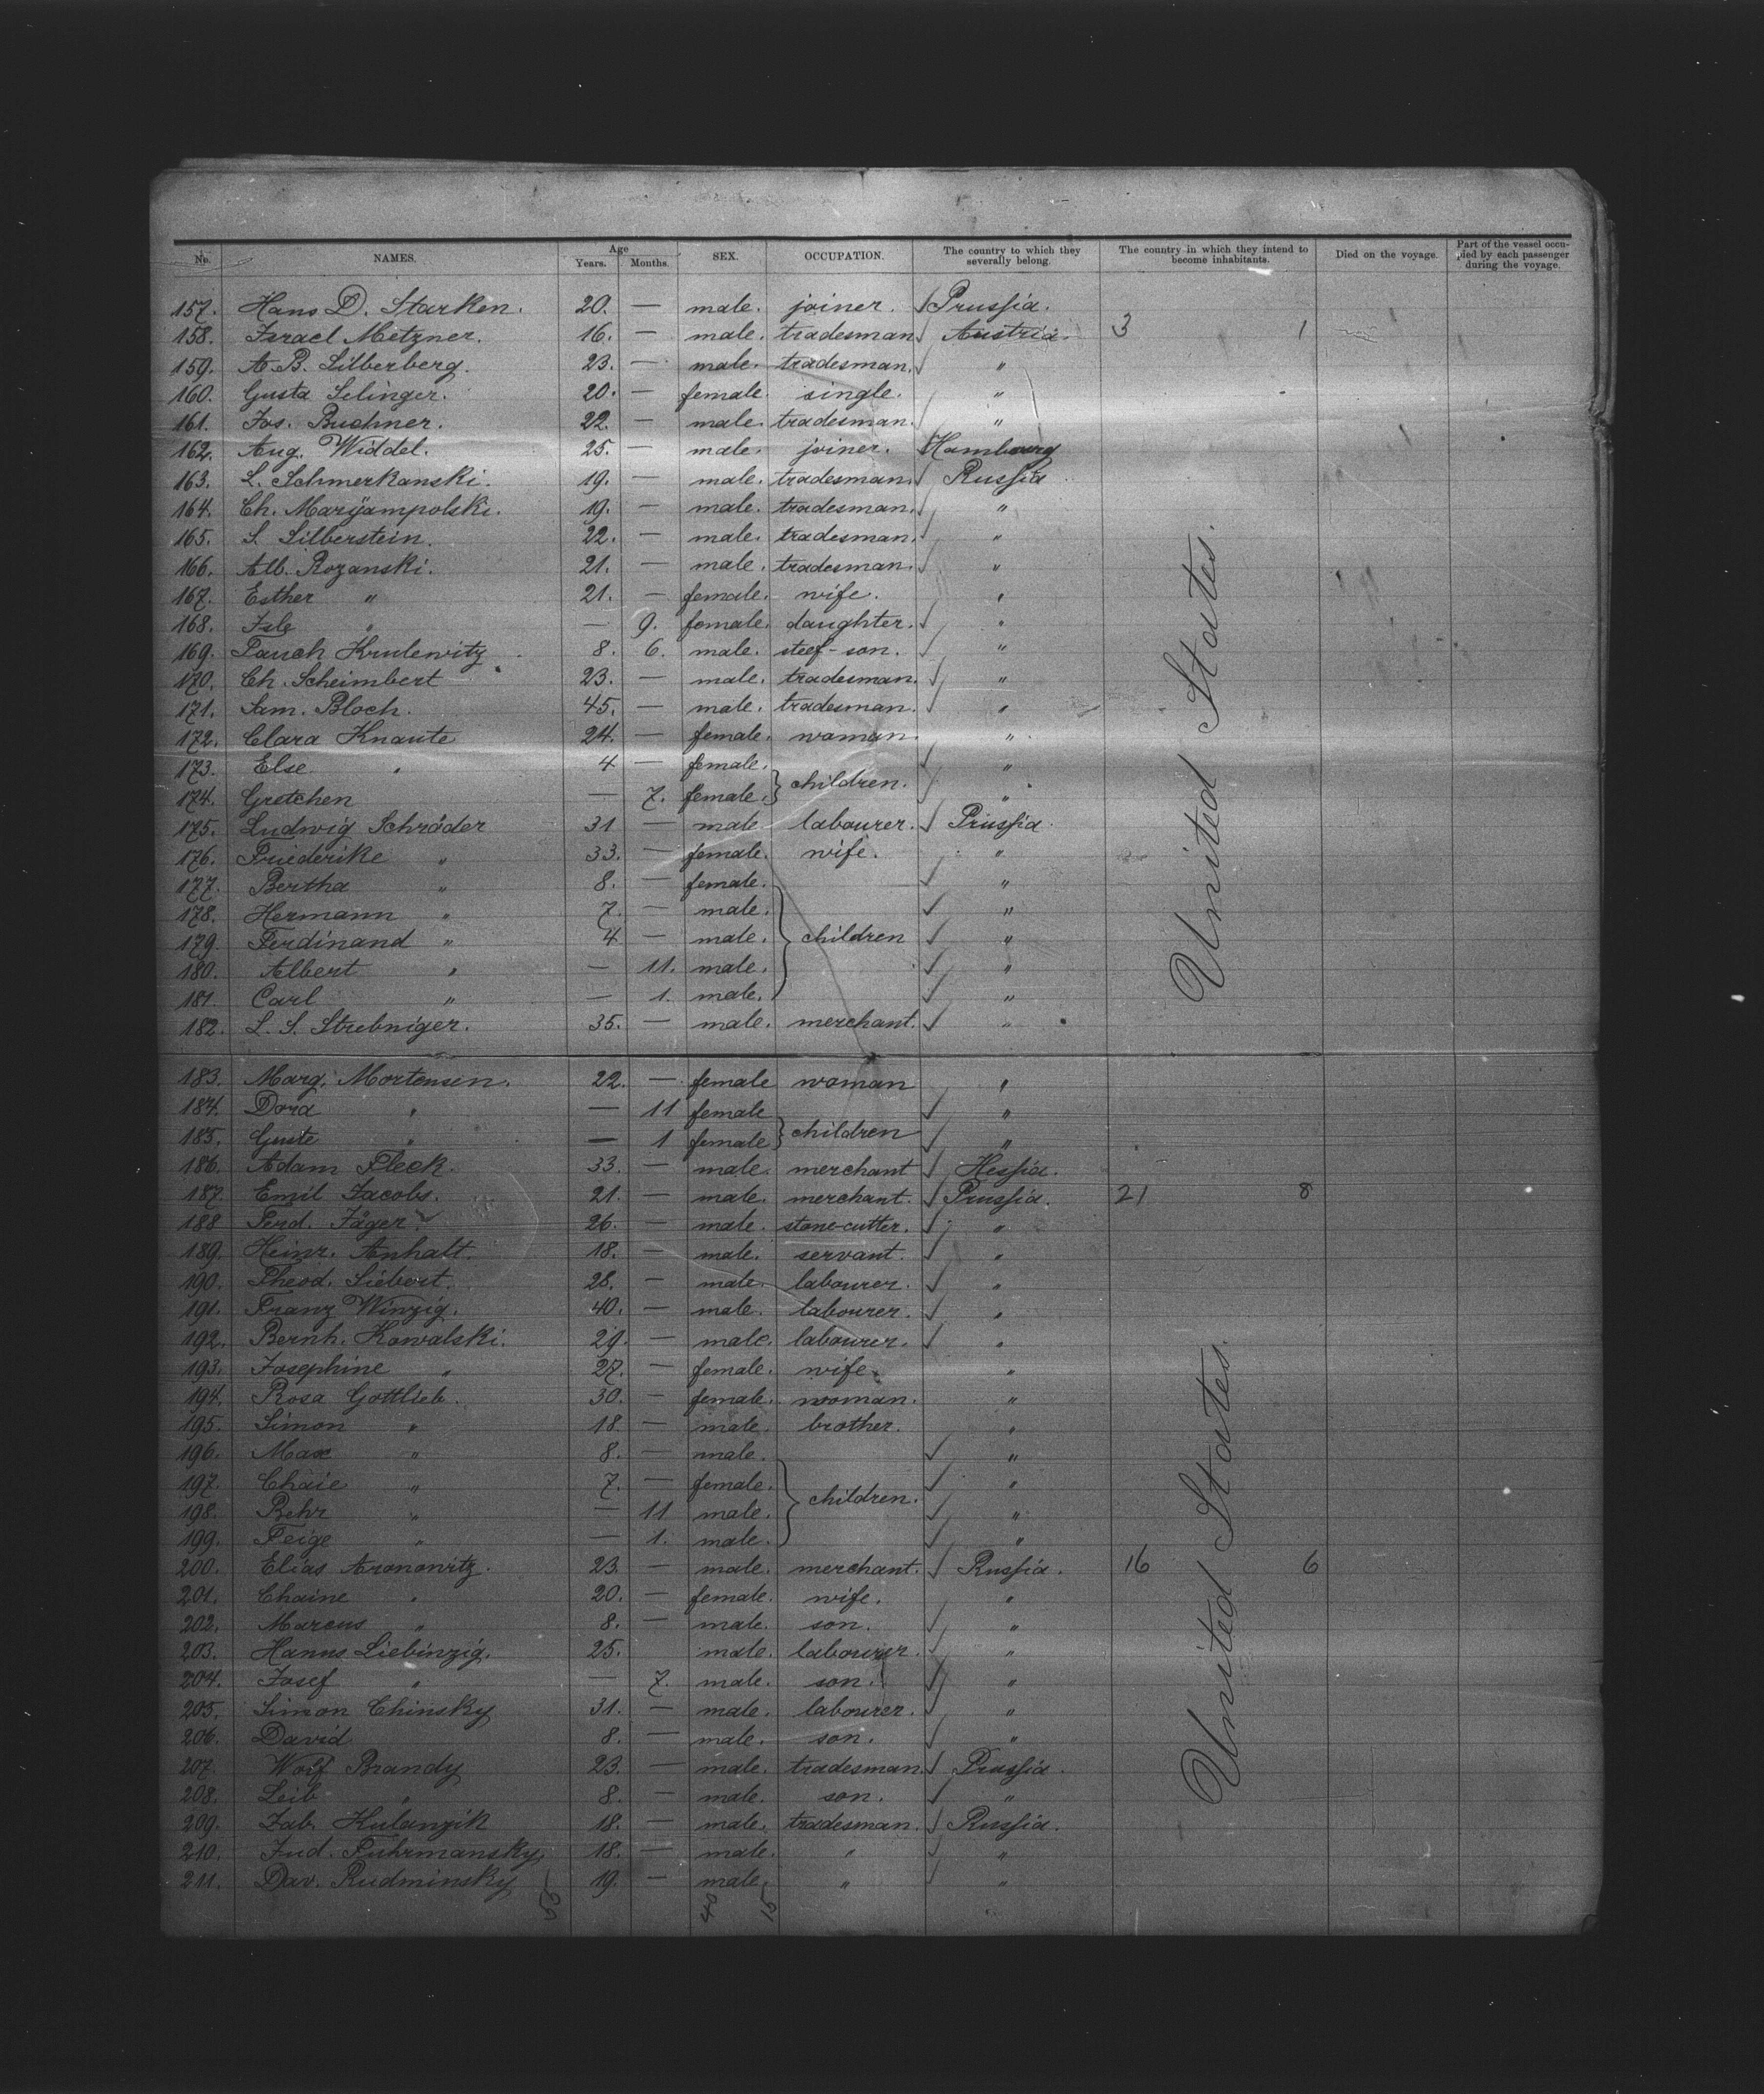 No. NAMES. Age Years. Months. SEX. OCCUPATION. The country to which they severally belong. The country in which they intend to become inhabitants. Died on the voyage. Part of the vessel occupied by each passenger during the voyage.
157. Hans D. Starken. 20. — male. joiner. ✓ Prussia.
158. Israel Metzner. 16. — male. tradesman ✓ Austria. 3 1
159. A. B. Silberberg. 23. — male. tradesman. ✓ "
160. Gusta Selinger. 20. — female. single. "
161. Jos. Buchner. 22. — male. tradesman. "
162. Aug. Widdel. 25. — male. joiner. Hambourg
163. L. Schmerkanski. 19. — male. tradesman. ✓ Russia
164. Ch. Maryampolski. 19. — male. tradesman. ✓ "
165. S. Silberstein. 22. — male. tradesman. ✓ "
166. Alb. Rozanski. 21. — male. tradesman. ✓ "
167. Esther " 21. — female. wife. "
168. " — 9. female. daughter. ✓ "
169. Tauch Krulewitz 8. 6. male. steef-son. ✓ "
170. Ch. Scheimbert 23. — male. tradesman. ✓ "
171. Sam. Bloch. 45. — male. tradesman. ✓ "
172. Clara Knaute 24. — female. woman. "
173. Else " 4 — female. children. ✓ "
174. Gretchen — 7. female. ✓ "
175. Ludwig Schröder 31 — male labourer. ✓ Prussia.
176. Friederike " 33. — female. wife. "
177. Bertha " 8. — female. ✓ "
178. Hermann " 7. — male. ✓ "
179. Ferdinand " 4 — male. children ✓ "
180. Albert " — 11. male. ✓ "
181. Carl " — 1. male. ✓ "
182. L. S. Strebniger. 35. — male. merchant. ✓ "
United States.
183. Marg. Mortensen. 22. — female woman "
184. Dora " — 11 female children ✓ "
185. Guste " — 1 female ✓ "
186. Adam Fleck. 33. — male. merchant ✓ Hessia.
187. Emil Jacobs. 21. — male. merchant. ✓ Prussia. 21 8
188 Ferd. Jäger. 26. — male. stone-cutter. ✓ "
189. Heinr. Anhalt. 18. — male. servant. ✓ "
190. Theod. Siebert. 28. — male. labourer. ✓ "
191. Franz Winzig. 40. — male. labourer. ✓ "
192. Bernh. Kowalski. 29. — male. labourer. ✓ "
193. Josephine " 27. — female. wife. "
194. Rosa Gottlieb. 30. — female. woman. "
195. Simon " 18. — male. brother. "
196. Max " 8. — male. ✓ "
197. Chaie " 7. — female. children. ✓ "
198. Behr " — 11 male. ✓ "
199. Feige " — 1. male. ✓ "
200. Elias Aronowitz. 23. — male. merchant. ✓ Russia. 16 6
201. Chaine " 20. — female. wife. "
202. Marcus " 8. — male. son. ✓ "
203. Hanns Liebinzig. 25. male. labourer. ✓ "
204. Josef " — 7. male. son. ✓ "
205. Simon Chinsky 31. — male. labourer. ✓ "
206. David 8. — male. son. ✓ "
207. Wolf Brandy 23. — male. tradesman. ✓ Prussia.
208. Leib " 8. — male. son. ✓ "
209. Jab. Kulanzik 18. — male. tradesman. ✓ Russia.
210. Jud. Fuhrmansky 18. — male. " ✓ "
211. Dav. Rudminsky 19. — male. " ✓ "
United States.
55 40 15